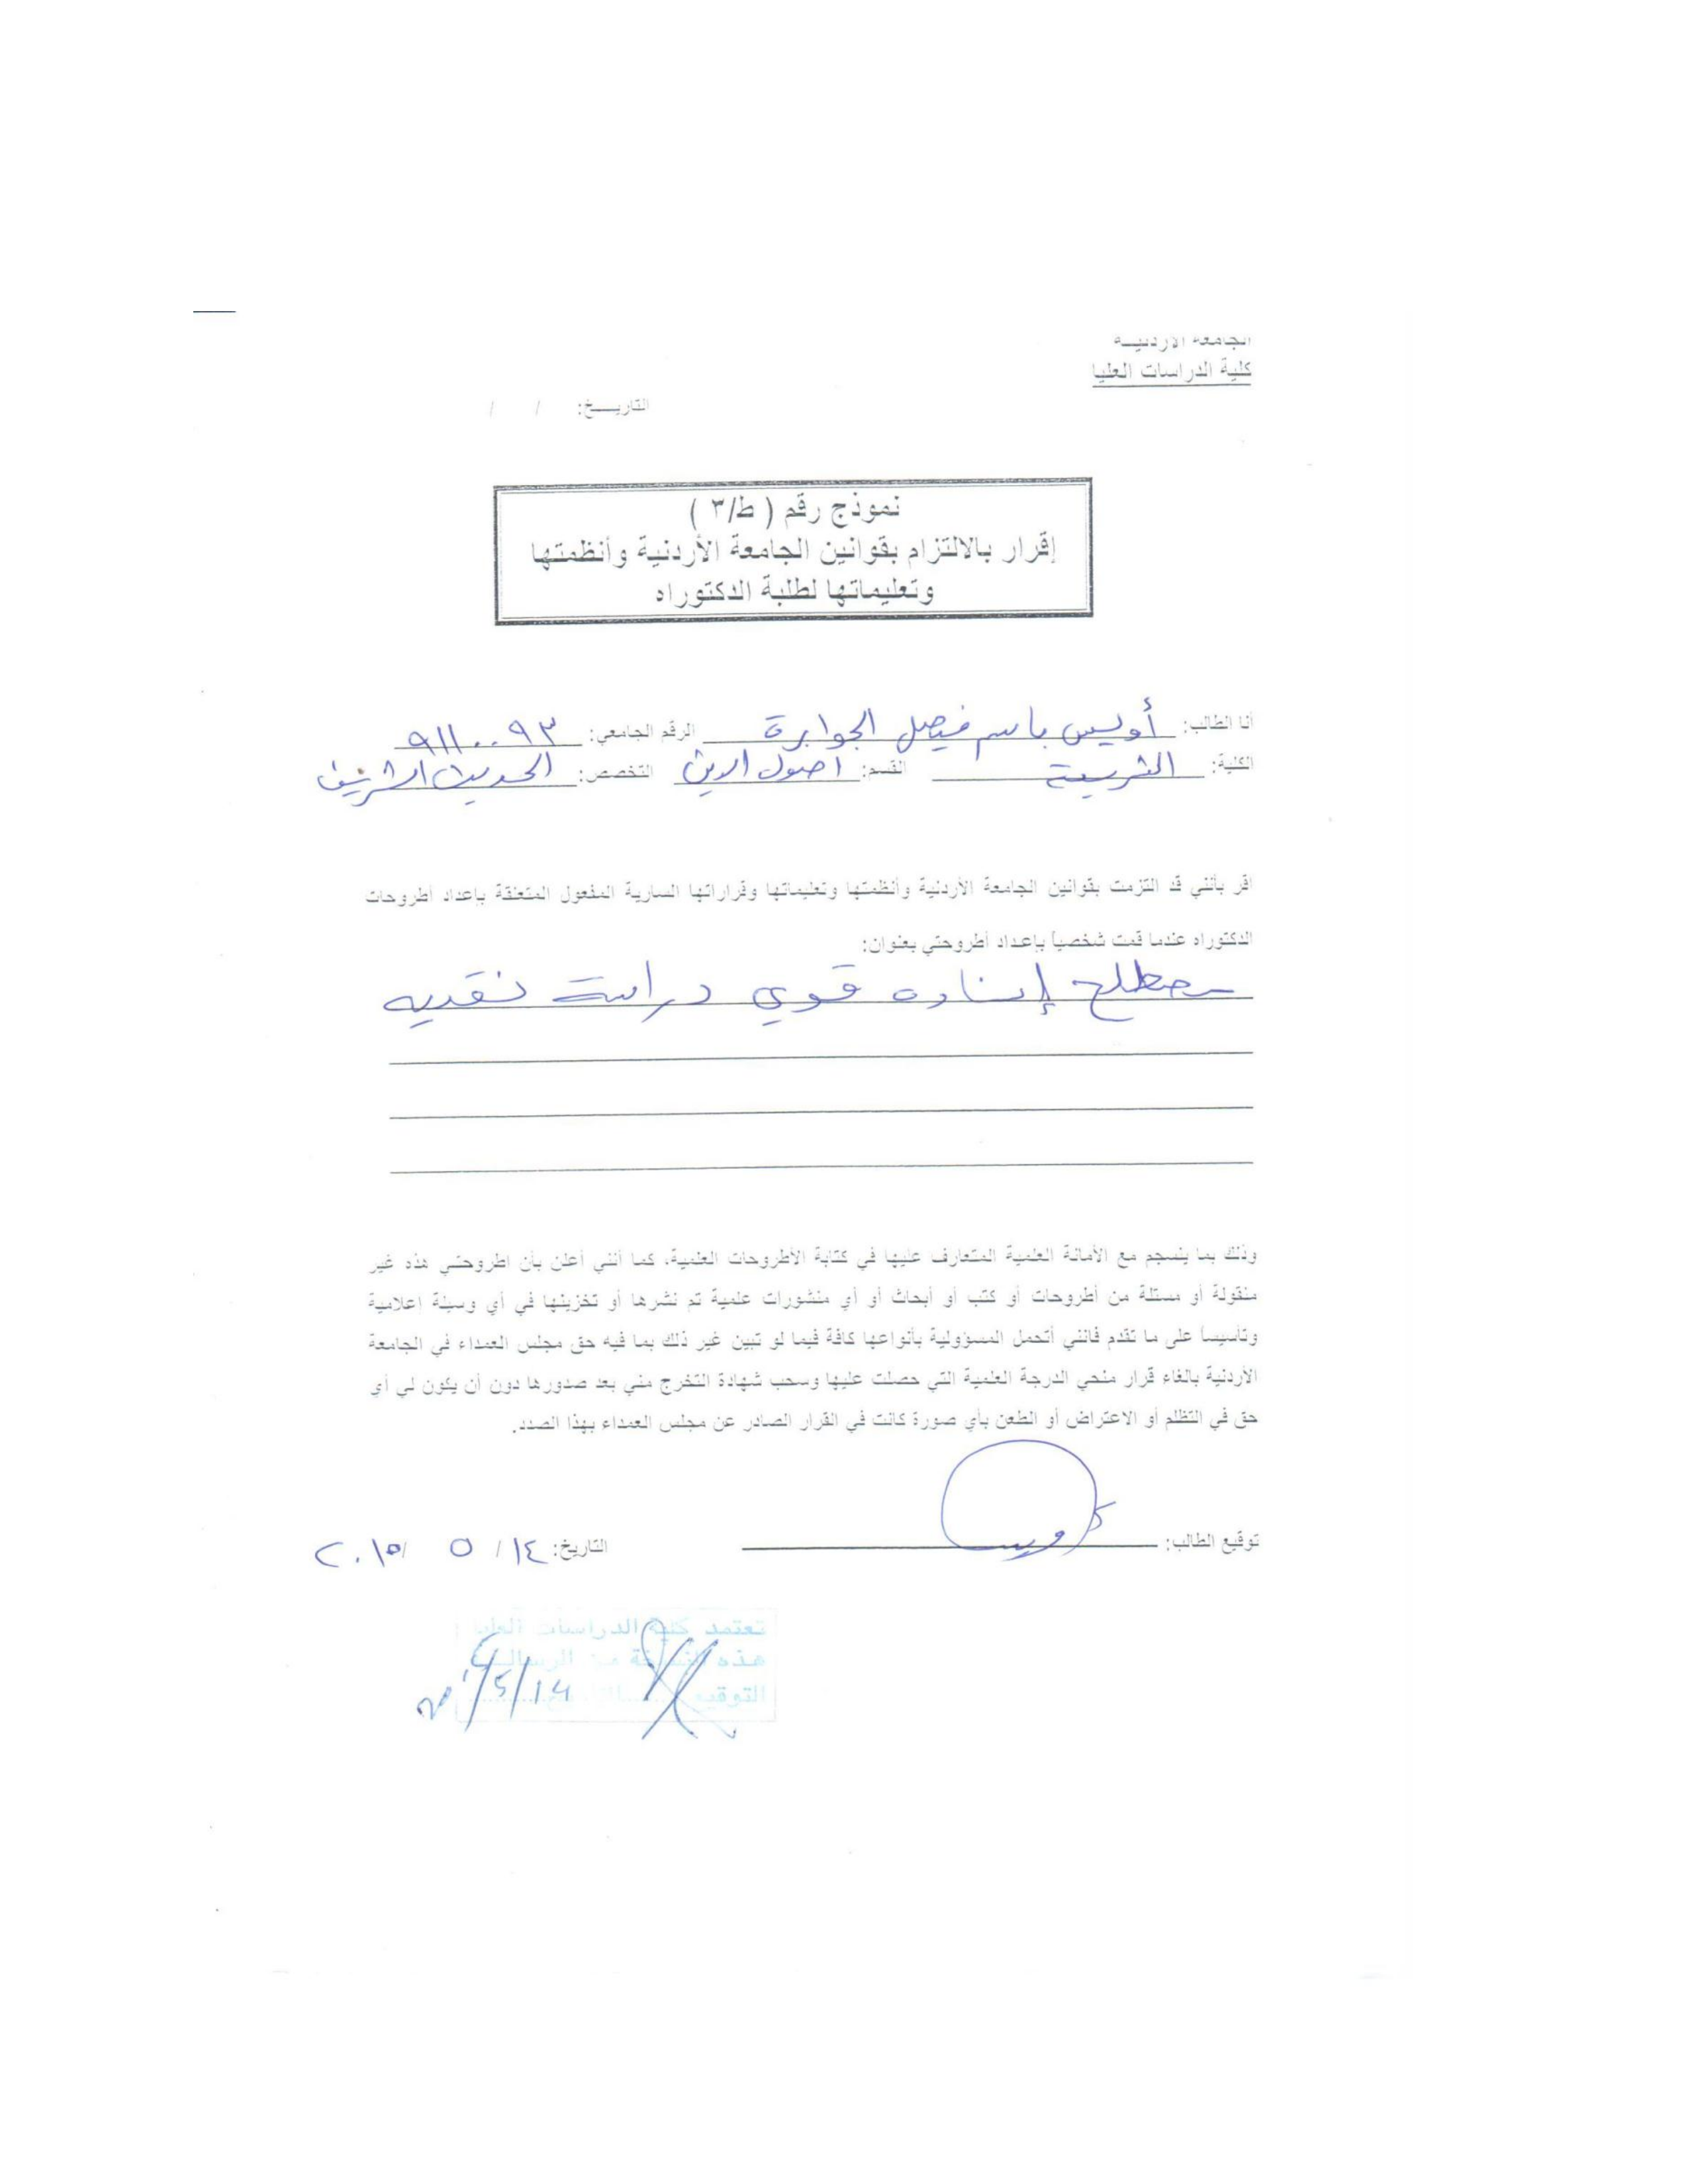 الجامعة الأردنيــة
كلية الدراسات العليا
التاريــخ: / /
نموذج رقم ( ط/٣ )
إقرار بالالتزام بقوانين الجامعة الأردنية وأنظمتها
وتعليماتها لطلبة الدكتوراه
أنا الطالب: أويس باسم فيصل الجوابرة الرقم الجامعي: ٩١١٠٠٩٣
الكلية: الشريعة القسم: اصول الدين التخصص: الحديث الشريف
اقر بأنني قد التزمت بقوانين الجامعة الأردنية وأنظمتها وتعليماتها وقراراتها السارية المفعول المتعلقة بإعداد أطروحات
الدكتوراه عندما قمت شخصياً بإعداد أطروحتي بعنوان:
مصطلح إسناده قوي دراسة نقديه
وذلك بما ينسجم مع الأمانة العلمية المتعارف عليها في كتابة الأطروحات العلمية، كما أنني أعلن بأن اطروحتي هذه غير
منقولة أو مستلة من أطروحات أو كتب أو أبحاث أو أي منشورات علمية تم نشرها أو تخزينها في أي وسيلة اعلامية
وتأسيساً على ما تقدم فانني أتحمل المسؤولية بأنواعها كافة فيما لو تبين غير ذلك بما فيه حق مجلس العمداء في الجامعة
الأردنية بالغاء قرار منحي الدرجة العلمية التي حصلت عليها وسحب شهادة التخرج مني بعد صدورها دون أن يكون لي أي
حق في التظلم أو الاعتراض أو الطعن بأي صورة كانت في القرار الصادر عن مجلس العمداء بهذا الصدد.
توقيع الطالب: التاريخ: ١٤ / ٥ / ٢٠١٥
تعتمد كلية الدراسات العليا
هذه النسخة من الرسالــة
التوقيع........التاريخ........